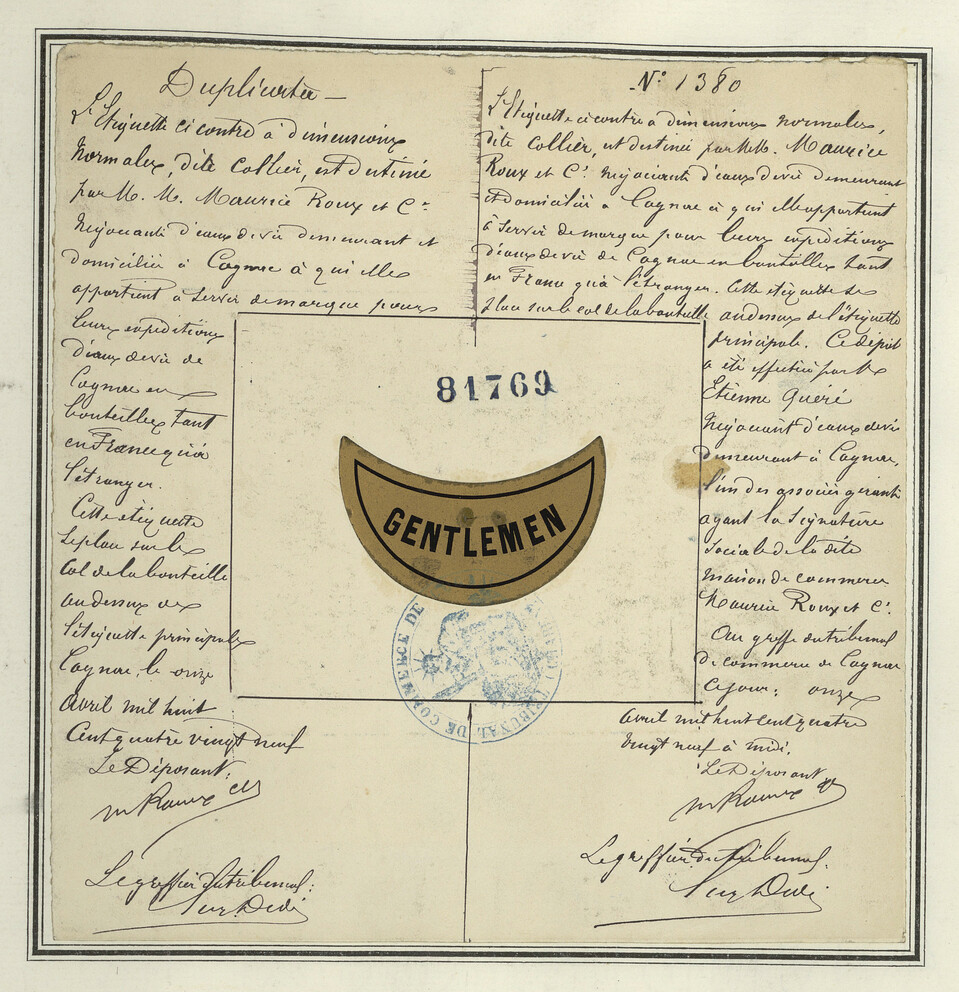 Duplicata —
L'Etiquette ci contre à dimensions
normales, dite Collier, est destinée
par M. M. Maurice Roux et Cie
Négociants d'eaux de vie demeurant et
domiciliés à Cognac à qui elle
appartient à servir de marque pour
leurs expéditions
d'eaux de vie de
Cognac en
bouteilles tant
en France qu'à
l'étranger.
Cette étiquette
se place sur le
Col de la bouteille
au dessus de
l'étiquette principale
Cognac, le onze
Avril mil huit
Cent quatre vingt neuf
Le Déposant:
M Roux Cie
Le greffier du tribunal:
N° 1380
L'Etiquette ci contre à dimensions normales,
dite Collier, est destinée par MM. Maurice
Roux et Cie Négociants d'eaux de vie demeurant
et domiciliés à Cognac à qui elle appartient
à servir de marque pour leurs expéditions
d'eaux de vie de Cognac en bouteilles tant
en France qu'à l'étranger. Cette étiquette se
place sur le col de la bouteille au dessus de l'étiquette
principale. Ce dépôt
a été effectué par M
Etienne Quéré
Négociant d'eaux de vie
demeurant à Cognac,
l'un des associés gérants
ayant la Signature
Sociale de la dite
maison de commerce
Maurice Roux et Cie
Au greffe du tribunal
de commerce de Cognac
Ce jour, onze
Avril mil huit cent quatre
vingt neuf à midi.
Le Déposant
M Roux Cie
Le greffier du tribunal.
81769
GENTLEMEN
TRIBUNAL DE COMMERCE DE